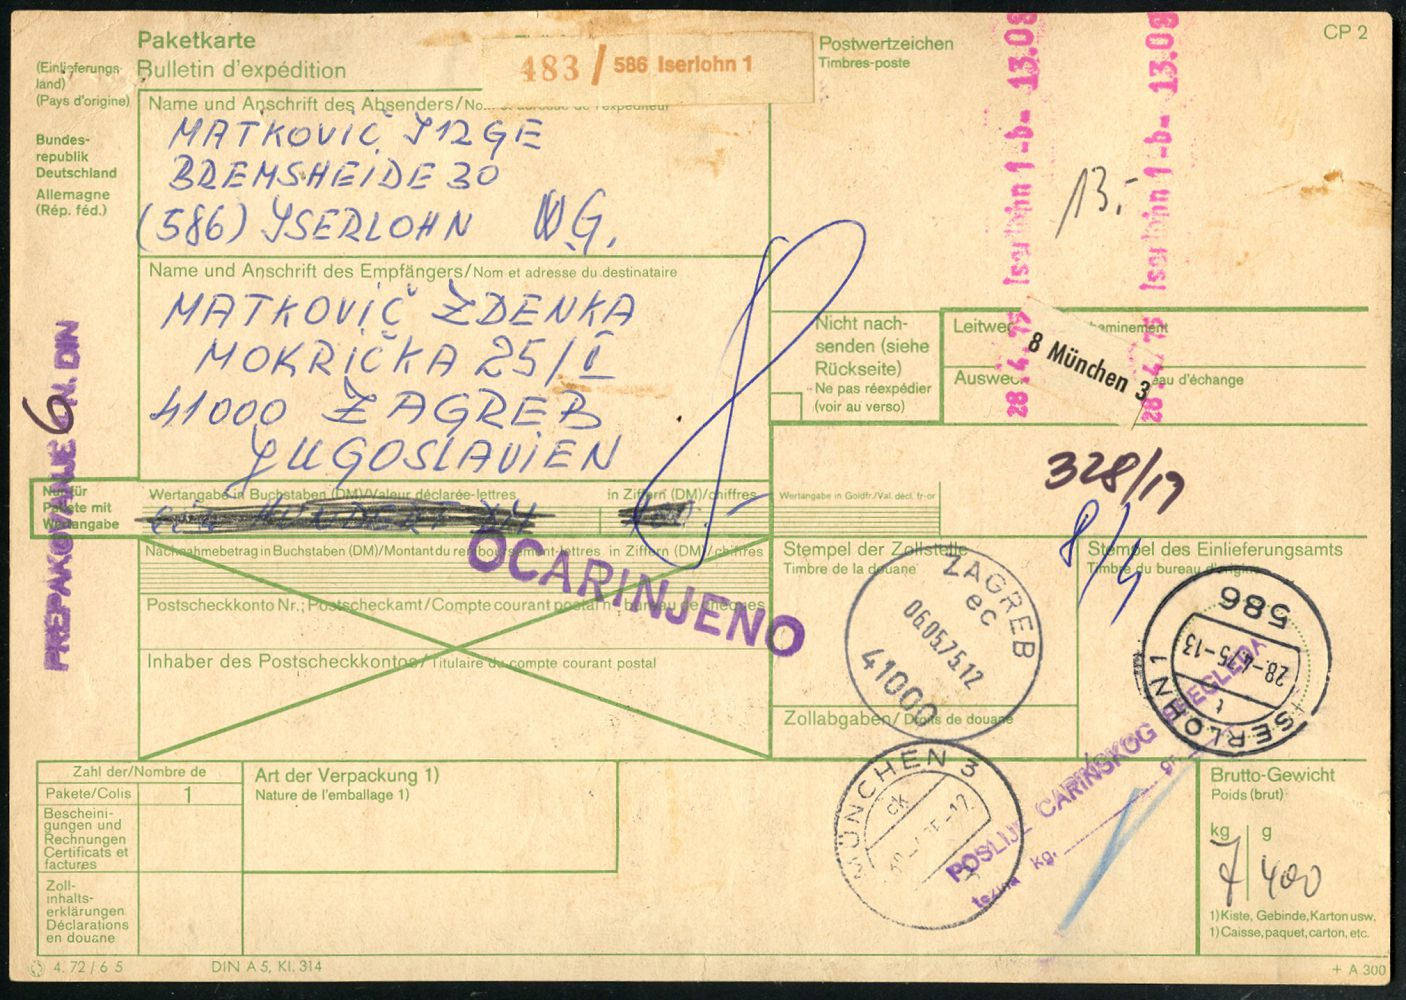 Paketkarte
Bulletin d'expédition
483 / 586 Iserlohn 1
Postwertzeichen
Timbres-poste
CP 2
(Einlieferungs-
land)
(Pays d'origine)
Bundes-
republik
Deutschland
Allemagne
(Rép. féd.)
Name und Anschrift des Absenders/
MATKOVIĆ
BREMSHEIDE 30
(586) ISERLOHN
Name und Anschrift des Empfängers/Nom et adresse du destinataire
MATKOVIĆ ZDENKA
MOKRIČKA 25/I
41000 ZAGREB
JUGOSLAVIEN
Iserlohn 1 -b- 13.08
28.4.75
Iserlohn 1 -b- 13.08
28.4.75
13.-
Nicht nach-
senden (siehe
Rückseite)
Ne pas réexpédier
(voir au verso)
8 München 3
eau d'échange
328/19
8/4
PREPAKOVANJE 6 N. DIN
Pakete mit
Wertangabe
Wertangabe in Buchstaben (DM)/Valeur déclarée-lettres
in Ziffern (DM)/chiffres
Wertangabe in Goldfr./Val. décl. fr-or
Nachnahmebetrag in Buchstaben (DM)/Montant du remboursement-lettres
in Ziffern (DM)/chiffres
OCARINJENO
Postscheckkonto Nr.; Postscheckamt/Compte courant postal n°, bureau de chèques
Inhaber des Postscheckkontos/Titulaire du compte courant postal
Stempel der Zollstelle
Timbre de la douane
ZAGREB
ec
06.05.75.12
41000
Stempel des Einlieferungsamts
Timbre du bureau d'origine
586
28.-4.75-13
t
ISERLOHN 1
Zollabgaben/Droits de douane
MÜNCHEN 3
ck
POSLIJE CARINSKOG PREGLEDA
težina kg. gr
Zahl der/Nombre de
Pakete/Colis
1
Bescheini-
gungen und
Rechnungen
Certificats et
factures
Zoll-
inhalts-
erklärungen
Déclarations
en douane
Art der Verpackung 1)
Nature de l'emballage 1)
Brutto-Gewicht
Poids (brut)
kg g
7 400
1) Kiste, Gebinde, Karton usw.
1) Caisse, paquet, carton, etc.
4. 72 / 6 5
DIN A 5, Kl. 314
+ A 300